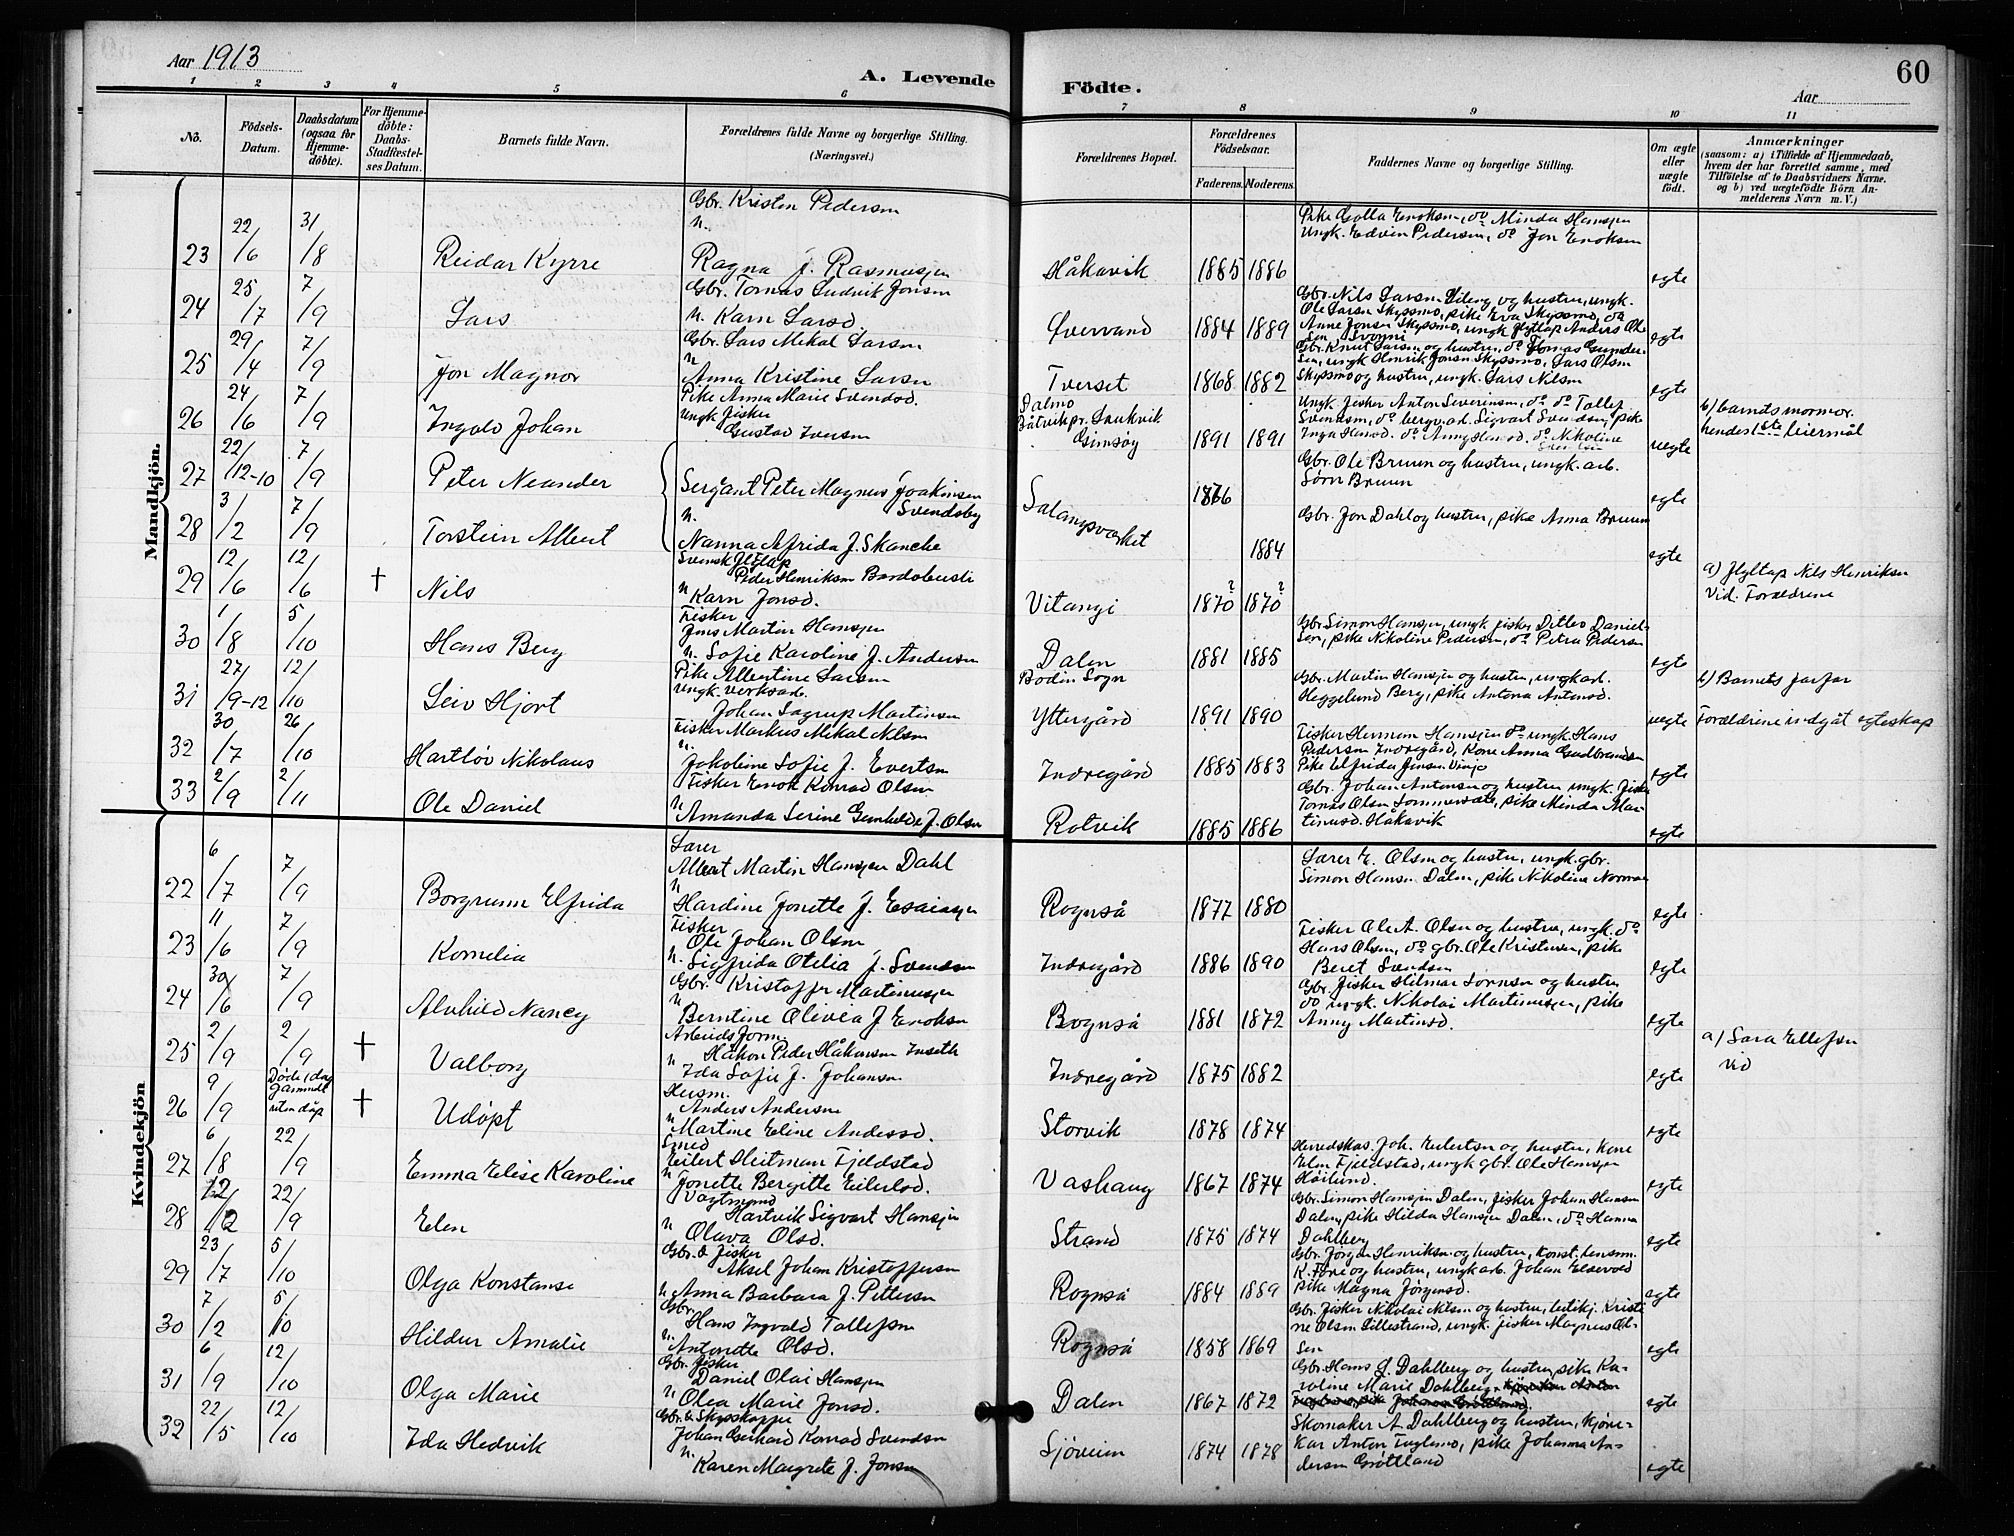 Aar 1913
A. Levende Födte.
60
Aar
1 2 3 4 5 6 7 8 9 10 11
No.
Födsels-Datum.
Daabsdatum (ogsaa for Hjemme-döbte).
For Hjemme-döbte: Daabs-Stadfæstel-ses Datum.
Barnets fulde Navn.
Forældrenes fulde Navne og borgerlige Stilling. (Næringsvei.)
Forældrenes Bopæl.
Forældrenes Födselsaar.
Faderens. Moderens.
Faddernes Navne og borgerlige Stilling.
Om ægte eller uægte födt.
Anmærkninger
(saasom: a) i Tilfælde af Hjemmedaab, hvem der har forrettet samme, med Tilföielse af to Daabsvidners Navne. og b) ved uægtefödte Börn An-melderens Navn m. V.)
Mandkjön.
Gbr. Kristen Pedersen
Pike Golla Enoksen, do Minda Hansen
Ungk. Edvin Pedersen, do Jon Enoksen
23 22/6 31/8 Reidar Kyrre
Ragna J. Rasmussen
Håkavik 1885 1886 egte
24 25/7 7/9 Lars
Gbr. Tomas Ludvik Jonsen
h. Karn Larsd
Övervand 1884 1889
Gbr. Nils Larsen Liberg og hustru, ungk.
Ole Larsen Skyssmo, pike Eva Skyssmo, do
Anne Jonsen Skyssmo, ungk flytlap Anders Ole
egte
25 29/4 7/9 Jon Magnor
Gbr. Lars Mikal Larsen
h
Anna Kristine Larsen
Tverset 1868 1882
Gbr. Knut Larsen og hustru, do Tomas Gunder-
sen, ungk Henrik Jonsen Skyssmo, Lars Olsen
Skyssmo og hustru, ungk. Lars Nilsen
egte
26 24/6 7/9 Ingolv Johan
Pike Anna Marie Svendsd.
ungk fisker
Gustav Iversen
Dalmo
Båtvik pr. Laukvik
Gimsøy 1891 1891
Ungk. fisker Anton Severinsen, do do Tollef
Svendsen, do bergv. ad. Sigvart Svendsen, pike
Inga Hansd. do Anny Hansd. do Nikoline
uegte
b) barnets mormor.
hendes 1ste leiermål
27 22/12-10 7/9 Peter Neander
Sergant Peter Magnus Joakimsen
Svendsby
Salangsverket 1876
Gbr. Ole Bruun og hustru, ungk. arb.
Sörn Bruun
egte
28 3/2 7/9 Torstein Albert
h.
Nanna Alfrida J. Skanche
1884
Gbr. Jon Dahl og hustru, pike Anna Bruun
egte
29 12/6 12/6 † Nils
Svensk flytlap
Peder Henriksen Bardobusti
h Karn Jonsd.
Vitangi 1870? 1870?
a) flytlap Nils Henriksen
Vid. Forældrene
30 1/8 5/10 Hans Berg
Fisker
Jens Martin Hansen
h. Sofie Karoline J. Andersen
Dalen 1881 1885
Gbr. Simon Hansen, ungk fisker Ditlev Daniel-
sen, pike Nikoline Pedersen, do Petra Pedersen
egte
31 27/9-12 12/10 Leiv Hjort
Pike Albertine Larsen
ungk. verksarb.
Johan Sagrup Martinsen
Bodin Sogn
Yttergård 1891 1890
Gbr. Martin Hansen og hustru, ungk arb.
Heggelund Berg, pike Antona Antonsd.
uegte
b) Barnets farfar
Forældrene indgåt egteskap
32 30/7 26/10 Hartløv Nikolaus
Fisker Markus Mikal Nilsen
h.
Jakobine Sofie J. Evertsen
Indregård 1885 1883
Fisker Hermann Hansen do ungk. Hans
Pedersen Indregård, Kone Anna Gudbrandsen
Pike Elfrida Jensen Vinje
egte
33 2/9 2/11 Ole Daniel
Fisker Enok Konrad Olsen
h
Amanda Serine Gunhilde J. Olsen
Rotvik 1885 1886
Gbr. Johan Antonsen og hustru ungk. fisker
Tomas Olsen Sommersæte, pike Minda Mar-
tinusd. Håkavik
egte
Kvindekjön
22 6/7 7/9 Borgrunn Elfrida
Lærer
Albert Martin Hansen Dahl
h
Hardine Jonette J. Esaiassen
Rognså 1877 1880
Lærer E. Olsen og hustru, ungk. gbr.
Simon Hansen Dalen, pike Nikoline Norman
egte
23 11/6 7/9 Kornelia
Fisker
Ole Johan Olsen
h. Sigfrida Otelia J. Svendsen
Indregård 1886 1890
Fisker Ole A. Olsen og hustru, ungk. do
Hans Olsen, do gbr. Ole Kristensen, pike
Beret Svendsen
egte
24 30/6 7/9 Alvhild Nancy
Gbr. Kristoffer Martinussen
h
Berntine Olivea J. Enoksen
Rognså 1881 1872
Gbr. fisker Hilmar Sörnsen og hustru
do ungk. Nikolai Martinussen, pike
Anny Martinsd.
egte
25 2/9 2/9 † Valborg
Arbeidsform.
Håkon Peder Håkonsen Inseth
h
Ida Sofie J. Johansen
Indregård 1875 1882 egte
a) Sara Ellefsen
vid
26 9/9 Døde 1 dag
gammel
uten dåp † Udøpt
Husm.
Anders Andersen
h
Martine Eline Andersd.
Storvik 1878 1874 egte
27 6/8 22/9 Emma Elise Karoline
Smed
Eilert Heitman Fjeldstad
h
Jonette Bergitte Eilertsd.
Vashaug 1867 1874
Herredskas. Joh. Eilertsen og hustru, kone
Elen Fjeldstad, ungk gbr. Ole Hansen
Höilund.
egte
28 12/12 22/9 Elen
Vagtmand
Hartvik Sigvart Hansen
h
Olava Olsd.
Strand 1875 1874
Gbr. Simon Hansen Dalen, fisker Johan Hansen
Dalen, pike Hilda Hansen Dalen, do Hanna
Dahlberg
egte
29 23/7 5/10 Olga Konstanse
Gbr. & fisker
Aksel Johan Kristoffersen
h Anna Barbara J. Pettersen
Rognså 1884 1889
Gbr. Jörgen Henriksen og hustru, konst. lensm.
K. Tøre og hustru, ungk arb. Johan Elsevold
pike Magna Jörgensd.
egte
30 7/2 5/10 Hildur Amalie
Gbr.
Hans Ingvald Tollefsen
h
Antonette Olsd.
Rognså 1858 1869
Gbr. fisker Nikolai Nilsen og hustru, butikj. Kristi
ne Olsen Lillestrand, ungk. fisker Magnus Ol-
sen
egte
31 6/9 12/10 Olga Marie
Gbr. fisker
Daniel Olai Hansen
h
Olea Marie Jonsd.
Dalen 1867 1872
Gbr. Hans J. Dahlberg og hustru, pike Ka-
roline Marie Dahlberg,
egte
32 22/5 12/10 Ida Hedvik
Gbr. & Skysskaffer
Johan Gerhard Konrad Svendsen
h.
Karen Margrete J. Jonsen
Sjöveien 1874 1878
Skomaker A. Dahlberg og hustru, kjøre-
kar Anton Fuglemo, pike Johanna An-
dersen Grøttland
egte